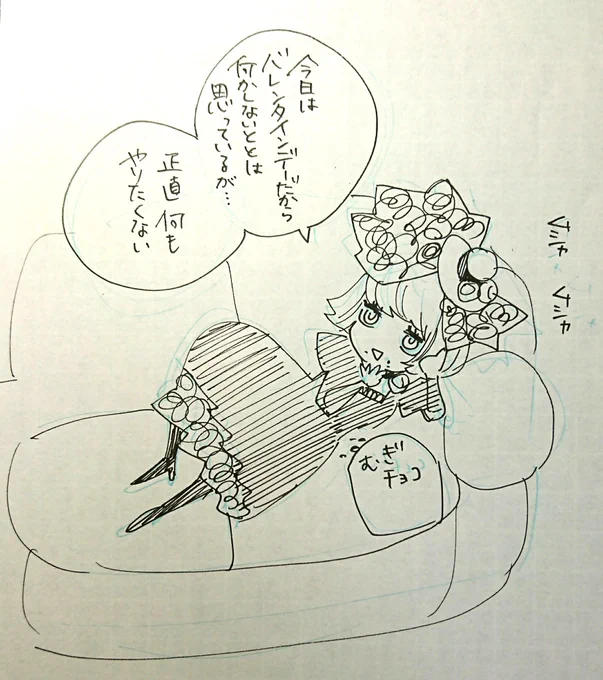 今日は
バレンタインデーだから
何かしないととは
思っているが…
正直 何も
やりたくない
ムシャ
ムシャ
むぎ
チョコ